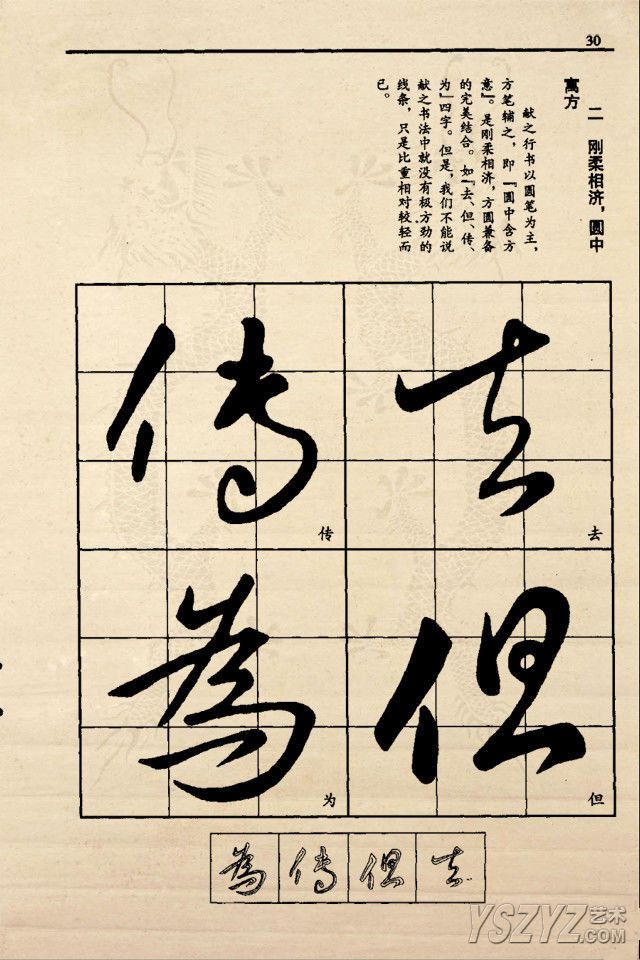 30
二　刚柔相济，圆中
寓方
献之行书以圆笔为主，
方笔辅之，即『圆中含方
意』。是刚柔相济，方圆兼备
的完美结合。如『去、但、传、
为』四字。但是，我们不能说
献之书法中就没有极方劲的
线条，只是比重相对较轻而
已。
去
去
但
但
傳
传
為
为
去
但
傳
為
YSZYZ艺术
.COM